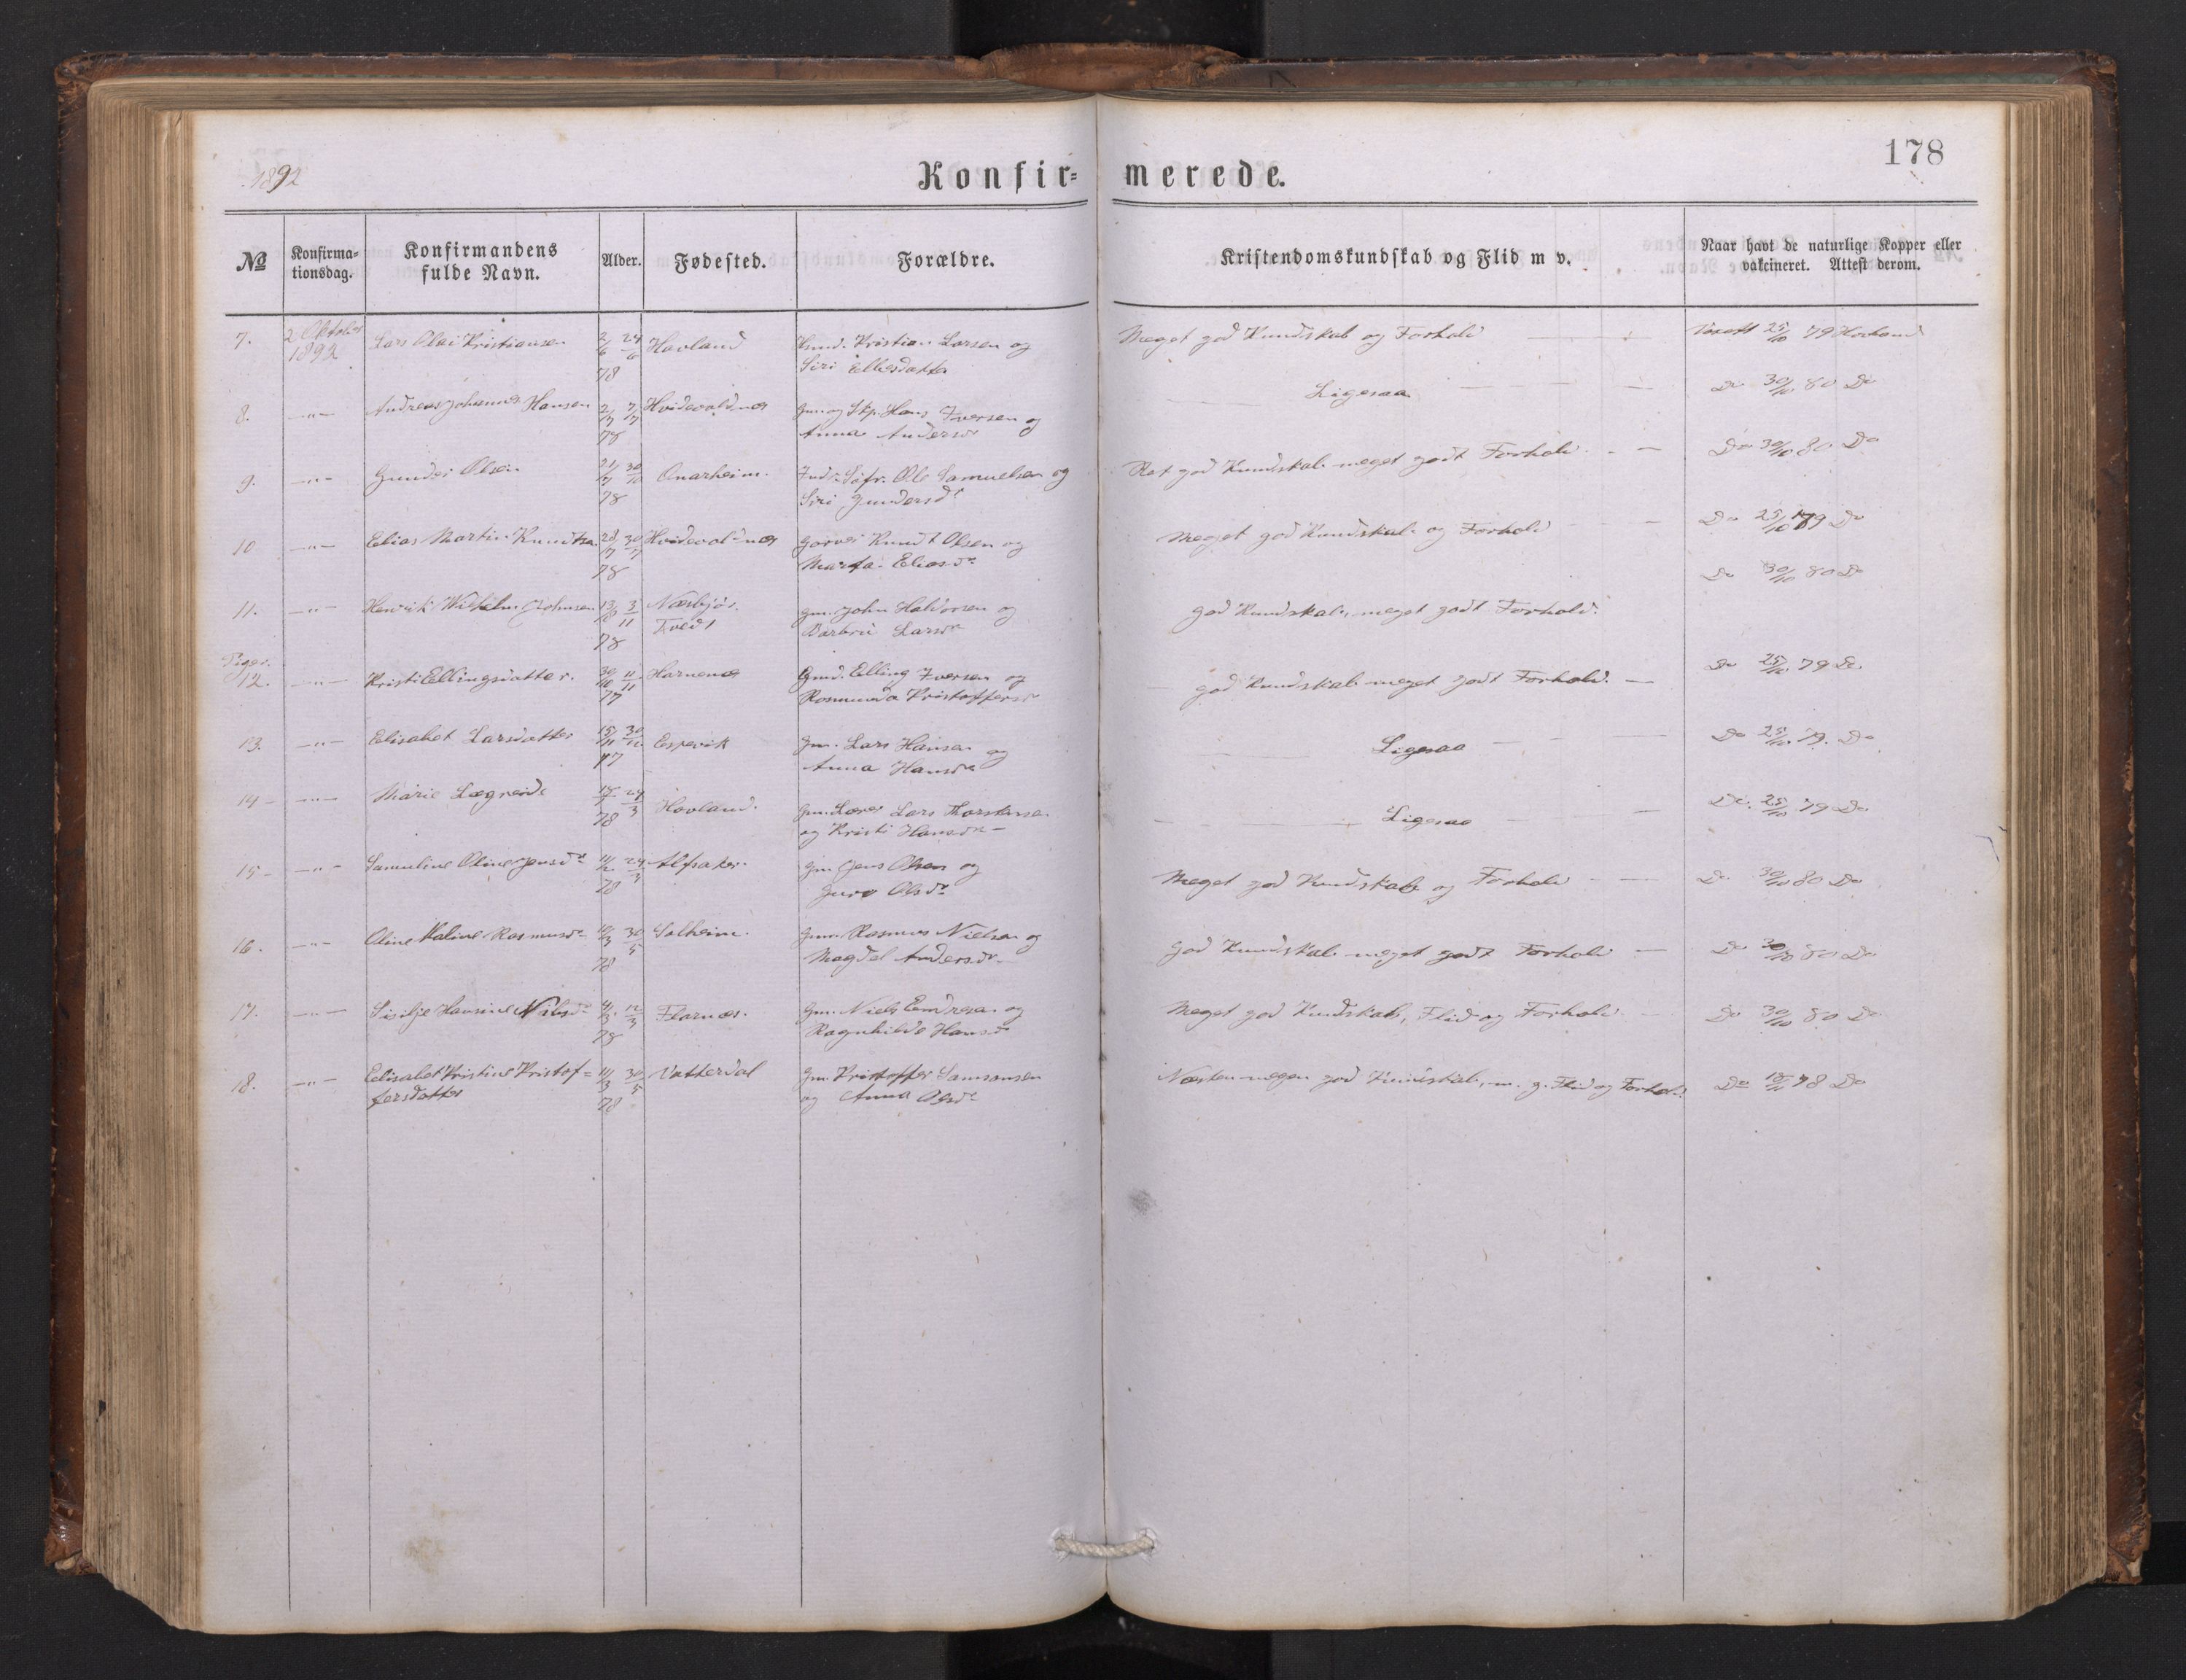 1892
Konfir=
merede.
178
No
Konfirma-
tionsdag.
Konfirmandens
fulde Navn.
Alder.
Fødested.
Forældre.
Kristendomskundskab og Flid m v.
Naar havt de naturlige Kopper eller
vakcineret. Attest derom.
7. 2 Oktober 1892 Lars Olai Kristiansen 2/6 78 24/6 Hovland Kristian Larsen og
Siri Ellefsdatter
Meget god Kundskab og Forhold 25/10 79
8. -"- Andreas Johannes Hansen 2/7 78 Hvidevoldnæs Hans Iversen og
Anna Andersdr
Ligesaa Do 30/10 80 Do
9. -"- Gunder Olsen 78 30/10 Onarheim. Ole Samuelsen og
Siri Gundersdr
Ret god Kundskab meget godt Forhold Do 30/10 80 Do
10 -"- Elias Martin Knudtsen 78 Hvidevoldnæs Knudt Olsen og
Marta Eliasdr
Meget god Kundskab og Forhold Do 25/10 79 Do
11. -"- Henrik Wilhelm Johnsen 78 3/11 John Haldorsen og
Barbru Larsdr
god Kundskab, meget godt Forhold. Do 30/10 80 Do
Piger.
12. -"- Kristi Ellingsdatter. 30/10 77 11/11 Elling Iversen og
Rosmunda Kristoffersdr
god Kundskab meget godt Forhold. Do 25/10 79 Do
13. -"- Elisabet Larsdatter 15/11 77 Espevik Gm. Lars Hansen og
Anna Hansdr
Ligesaa Do 25/10 79. Do
14 -"- Marie Lægreid 78 24/3 Hovland. Gm. Lærer Lars Thorstensen
og Kristi Hansdr
Ligesaa Do. 25/10 79 Do
15 -"- Samuline Oline Jensdr 78 24/3 Alfsaker. Gm. Jens Olsen og
Guro Olsdr
Meget god Kundskab og Forhold Do 30/10 80 Do
16. -"- Oline Maline Rasmusdr 78 30/5 Solheim. Gm. Rasmus Nielsen og
Magdel Andersdr
god Kundskab meget godt Forhold Do 30/10 80 Do
17. -"- Sisilje Hansine Nilsdr 4/3 78 12/3 Flornæs. Gm. Niels Endresen og
Ragnhilde Hansdr
Meget god Kundskab, Flid og Forhold Do 30/10 80 Do
18. -"- Elisabet Kristine Kristof=
fersdatter 78 30/5 Vatterdal Gm. Kristoffer Samsonsen
og Anna Olsdr
Næsten megen god Kundskab, m. g. Flid og Forhold. Do 78 Do